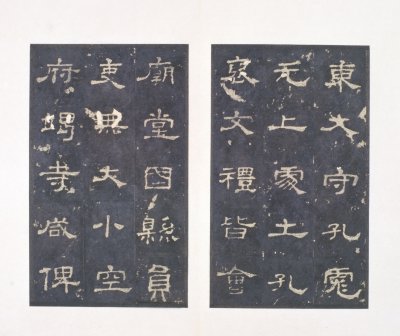 東大守孔彪
元上處士孔
褒文禮皆會
廟堂國縣員
吏無大小空
府竭寺咸俾